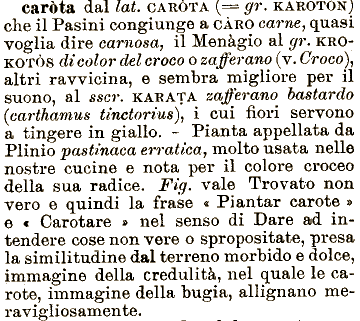 caròta dal lat. CARÒTA (= gr. KAROTON)
che il Pasini congiunge a CÀRO carne, quasi
voglia dire carnosa, il Menàgio al gr. KRO-
KOTÒS di color del croco o zafferano (v. Croco),
altri ravvicina, e sembra migliore per il
suono, al sscr. KARAṬA zafferano bastardo
(carthamus tinctorius), i cui fiori servono
a tingere in giallo. - Pianta appellata da
Plinio pastinaca erratica, molto usata nelle
nostre cucine e nota per il colore croceo
della sua radice. Fig. vale Trovato non
vero e quindi la frase « Piantar carote »
e « Carotare » nel senso di Dare ad in-
tendere cose non vere o spropositate, presa
la similitudine dal terreno morbido e dolce,
immagine della credulità, nel quale le ca-
rote, immagine della bugia, allignano me-
ravigliosamente.